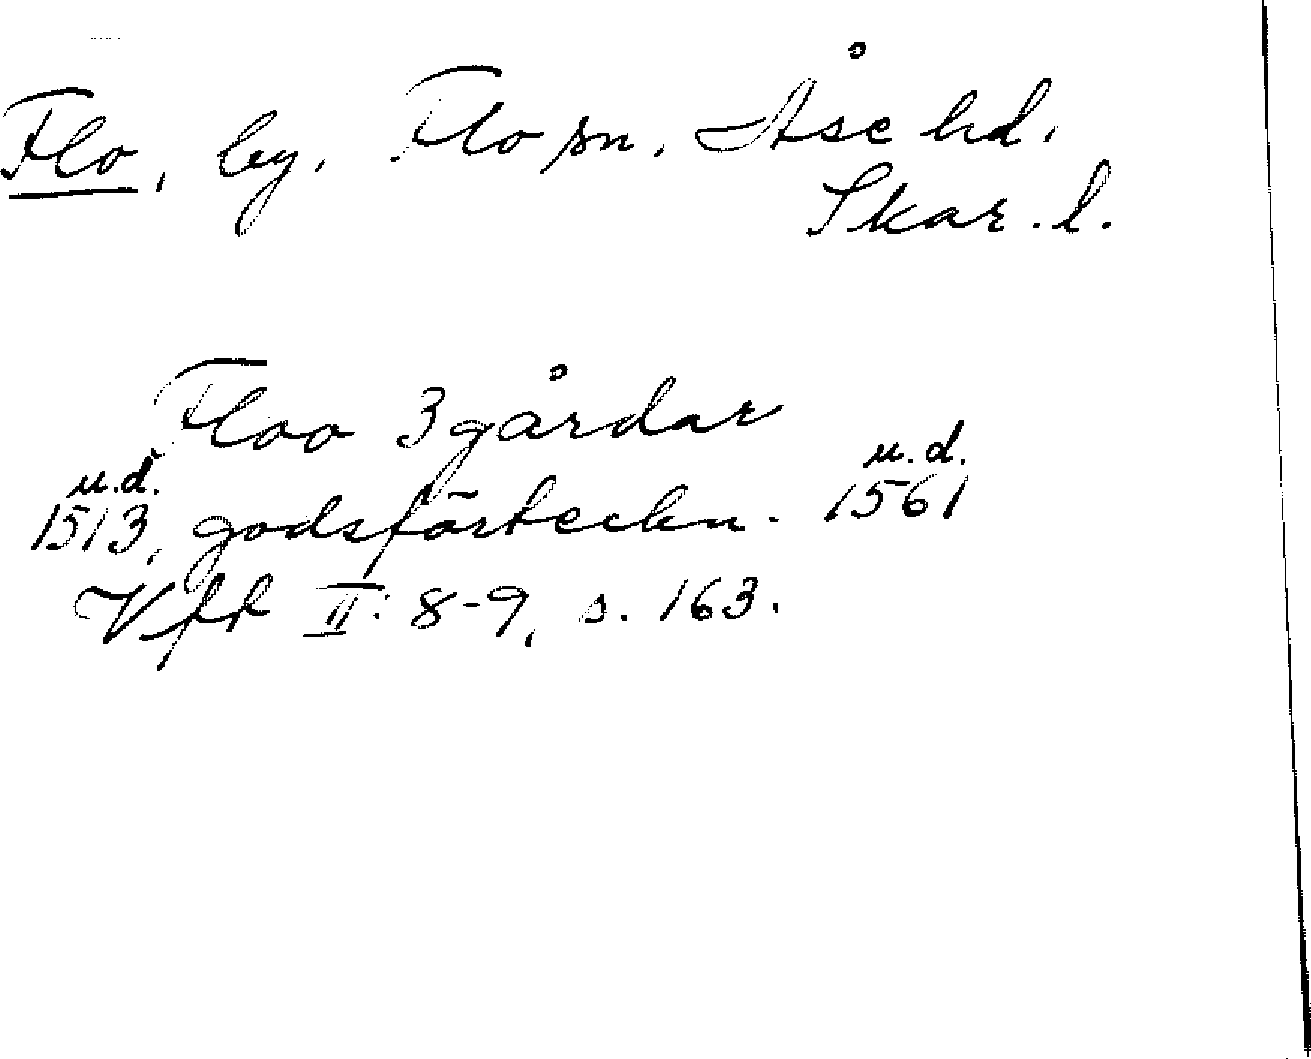 Flo, by. Flo sn. Åse hd.
Skar. l.
Floo 3 gårdar
u.d. u.d.
1513, godsförteckn. 1561
Vff II: 8-9, s. 163.